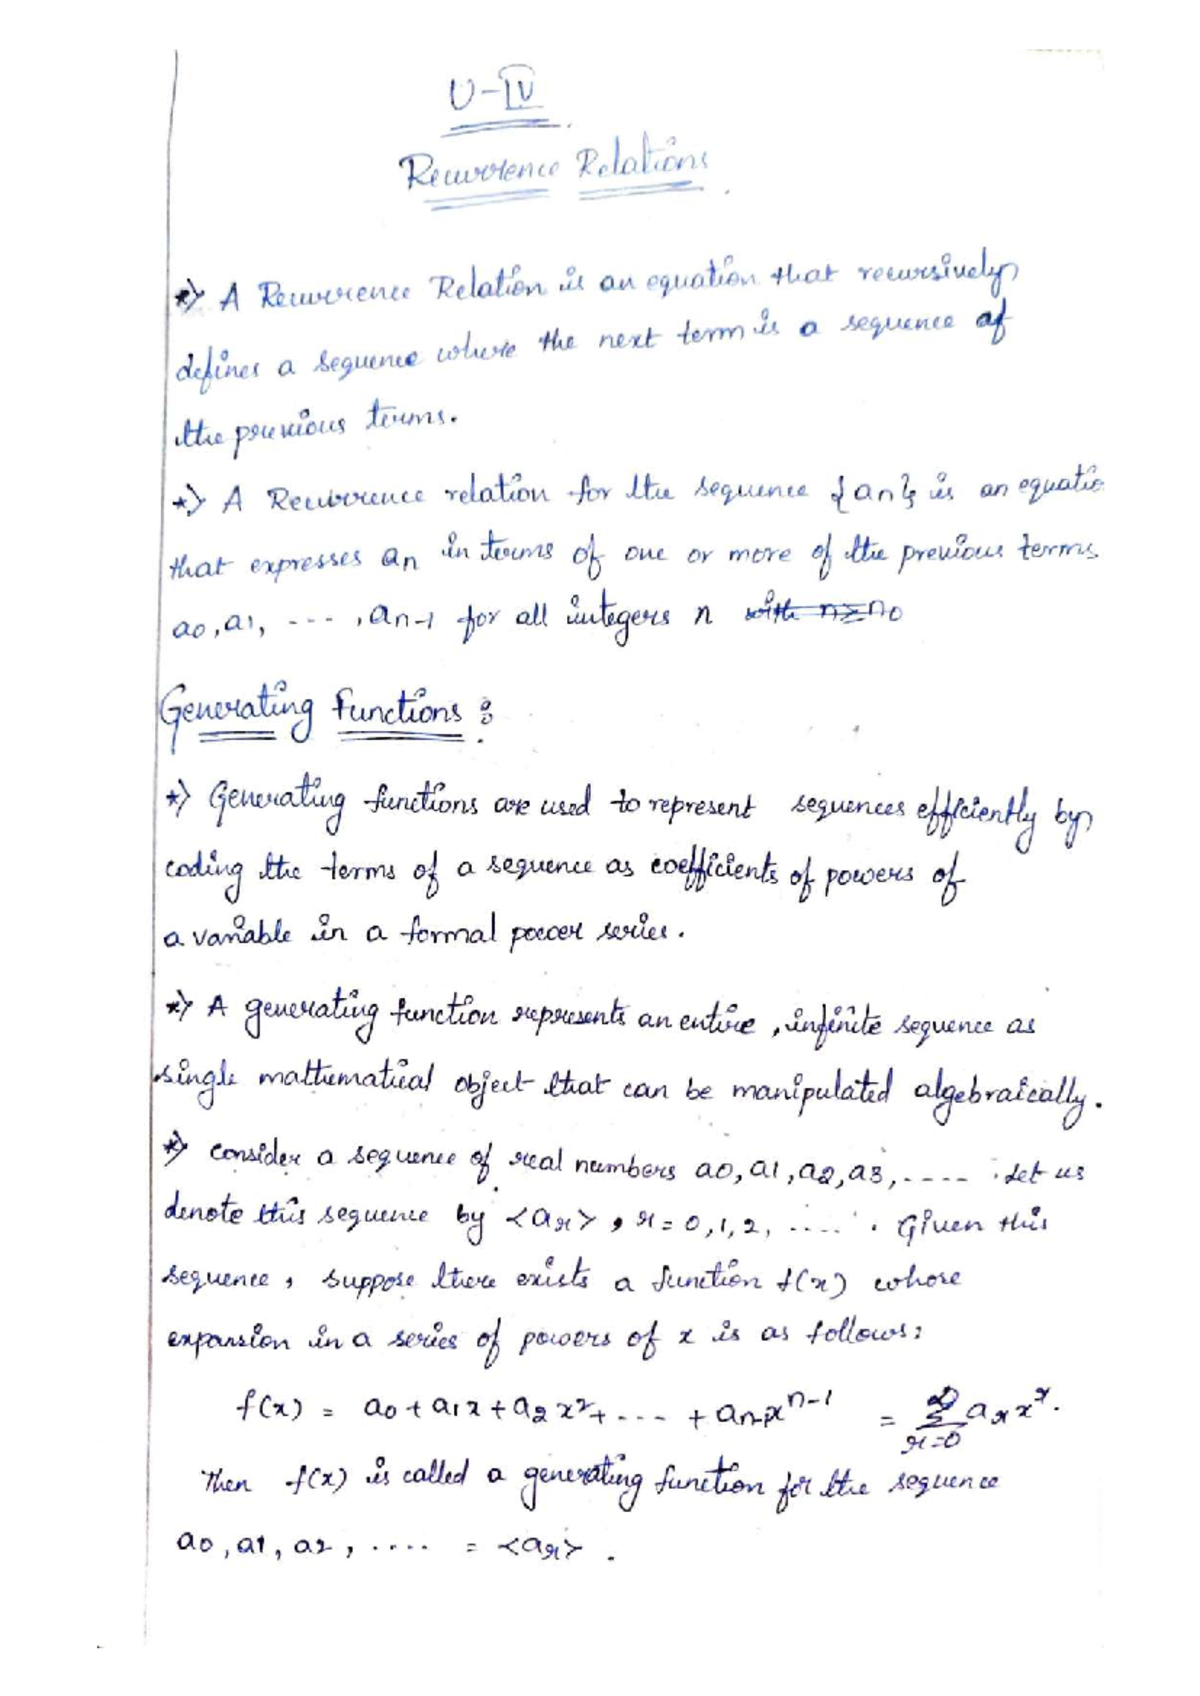 U-IV
Recurrence Relations
*) A Recurrence Relation is an equation that recursively
defines a sequence where the next term is a sequence of
the previous terms.
*) A Recurrence relation for the sequence {an} is an equatio
that expresses an in terms of one or more of the previous terms
a0, a1, ---, an-1 for all integers n with n≥n0
Generating Functions :
*) Generating functions are used to represent sequences efficiently by
coding the terms of a sequence as coefficients of powers of
a variable in a formal power series.
*) A generating function represents an entire, infinite sequence as
single mathematical object that can be manipulated algebraically.
*) consider a sequence of real numbers a0, a1, a2, a3, ..... . Let us
denote this sequence by <ar>, r = 0, 1, 2, ..... . Given this
sequence, suppose there exists a function f(x) whose
expansion in a series of powers of x is as follows:
f(x) = a0 + a1x + a2x² + --- + an-1x^n-1 = ∞Σr=0 ar x^r.
Then f(x) is called a generating function for the sequence
a0, a1, a2, .... = <ar> .